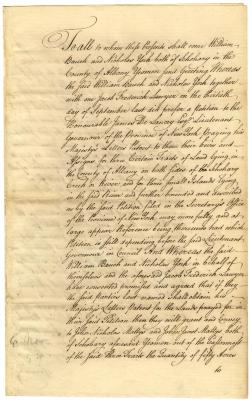 To all to whom these Presents shall come William
Bauch and Nicholas York both of Schohary in the
County of Albany Yeomen Send Greeting Whereas
the said William Bauch and Nicholas York together
with one Jacob Frederick Lawyer on the thirtieth
day of September last did prefer a Petition to the
Honourable James De Lancey Esqr. Lieutenant
Governour of the Province of New York Praying his
Majesty's Letters Patent to them their heirs and
Assigns for two Certain Tracts of Land lying in
the County of Albany on both sides of the Schohary
Creek or River and for three small Islands lying
in the said River and butted bounded and described
as by the said Petition filed in the Secretarys Office
of the Province of New York may more fully and at
large appear Reference being thereunto had which
Petition is still depending before the said Lieutenant
Governour in Council And Whereas the said
William Bauch and Nicholas York in behalf of
themselves and the aforesaid Jacob Frederick Lawyer
have covenanted promised and agreed that if they
the said parties last named Shall obtain his
Majesty's Letters Patent for the Lands prayed for in
their said Petition then they will grant and Convey
to John Nicholas Mattys and Johan Jurst Mattys both
of Schohary aforesaid Yeomen out of the Eastermost
of the said two Tracts the Quantity of fifty Acres
to